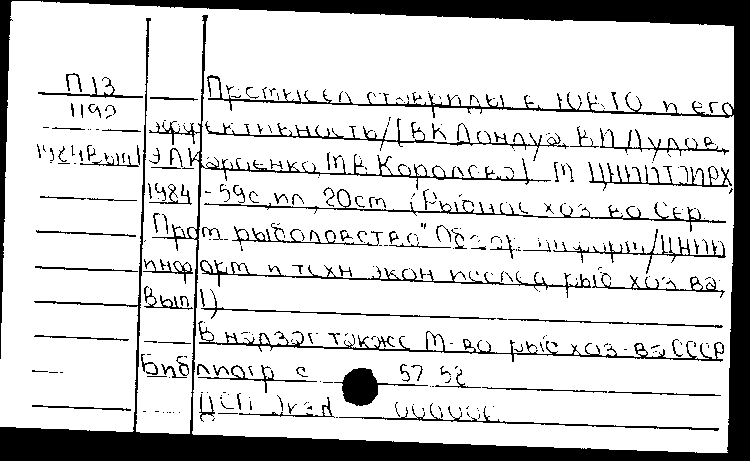 П13 Промысел ставриды в ЮВТО и его
1192 эффективность/[В К Дондуа, В П Дудов,
1984 Вып 1 Э Л Карпенко, М В Королева] М ЦНИИТЭИРХ,
1984 - 59с, ил, 20см (Рыбное хоз во Сер
Пром рыболовство" Обзор информ/ЦНИИ
информ и техн экон исслед рыб хоз ва,
Вып 1)
В надзаг также М-во рыб хоз-ва СССР
Библиогр с 57 58